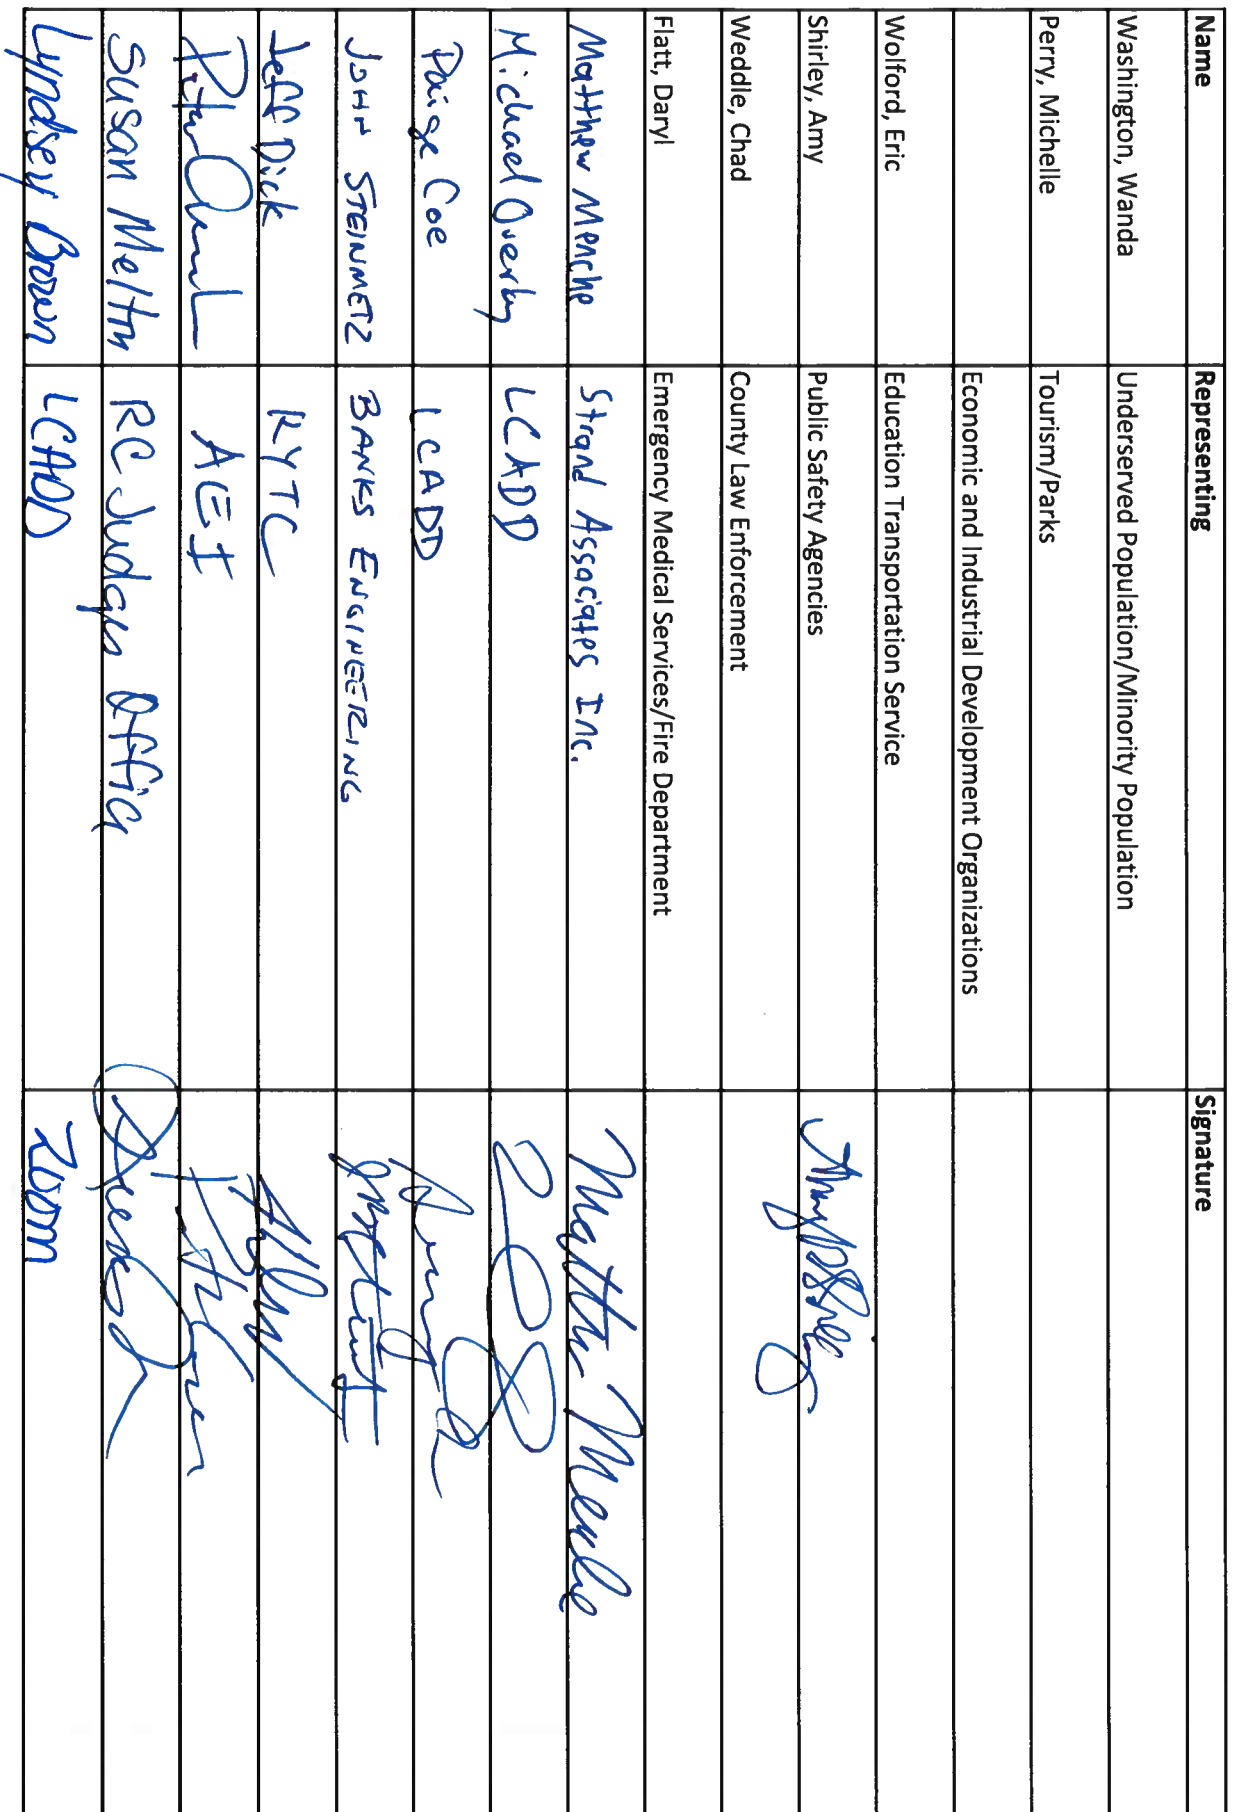 Name Representing Signature
Washington, Wanda Underserved Population/Minority Population
Perry, Michelle Tourism/Parks
Economic and Industrial Development Organizations
Wolford, Eric Education Transportation Service
Shirley, Amy Public Safety Agencies
Weddle, Chad County Law Enforcement
Flatt, Daryl Emergency Medical Services/Fire Department
Matthew Menche Strand Associates Inc. Matthew Menche
Michael Overby LCADD
Paige Coe LCADD
JOHN STEINMETZ BANKS ENGINEERING
Jeff Dick KYTC
AEI
Susan Melton RC Judges Office
Lyndsey Brown LCADD Zoom